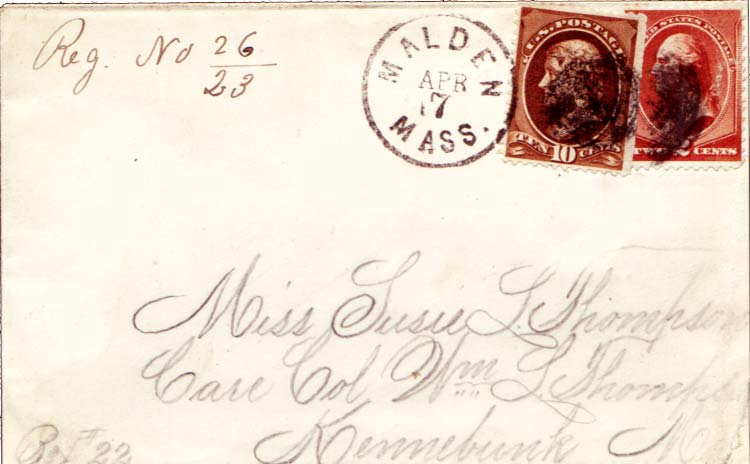 Reg. No 26
23
MALDEN
APR
17
MASS.
U.S. POSTAGE
TEN 10 CENTS
UNITED STATES POSTAGE
2 CENTS
Miss Susie L. Thompson
Care Col. Wm L. Thompson
Kennebunk
Box # 22